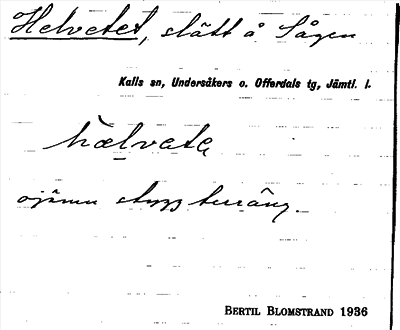 Helvetet, slått å Sågen
Kalls sn, Undersåkers o. Offerdals tg, Jämtl. l.
hælvate
ojämn stygg terräng.
BERTIL BLOMSTRAND 1936